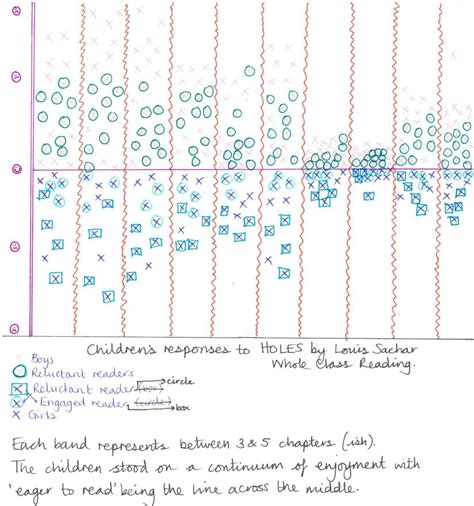 Children's responses to HOLES by Louis Sachar
Whole Class Reading.
Boys
Reluctant readers
Reluctant reader (box) circle
Engaged reader (circle) box
Girls
Each band represents between 3 & 5 chapters (ish).
The children stood on a continuum of enjoyment with
'eager to read' being the line across the middle.